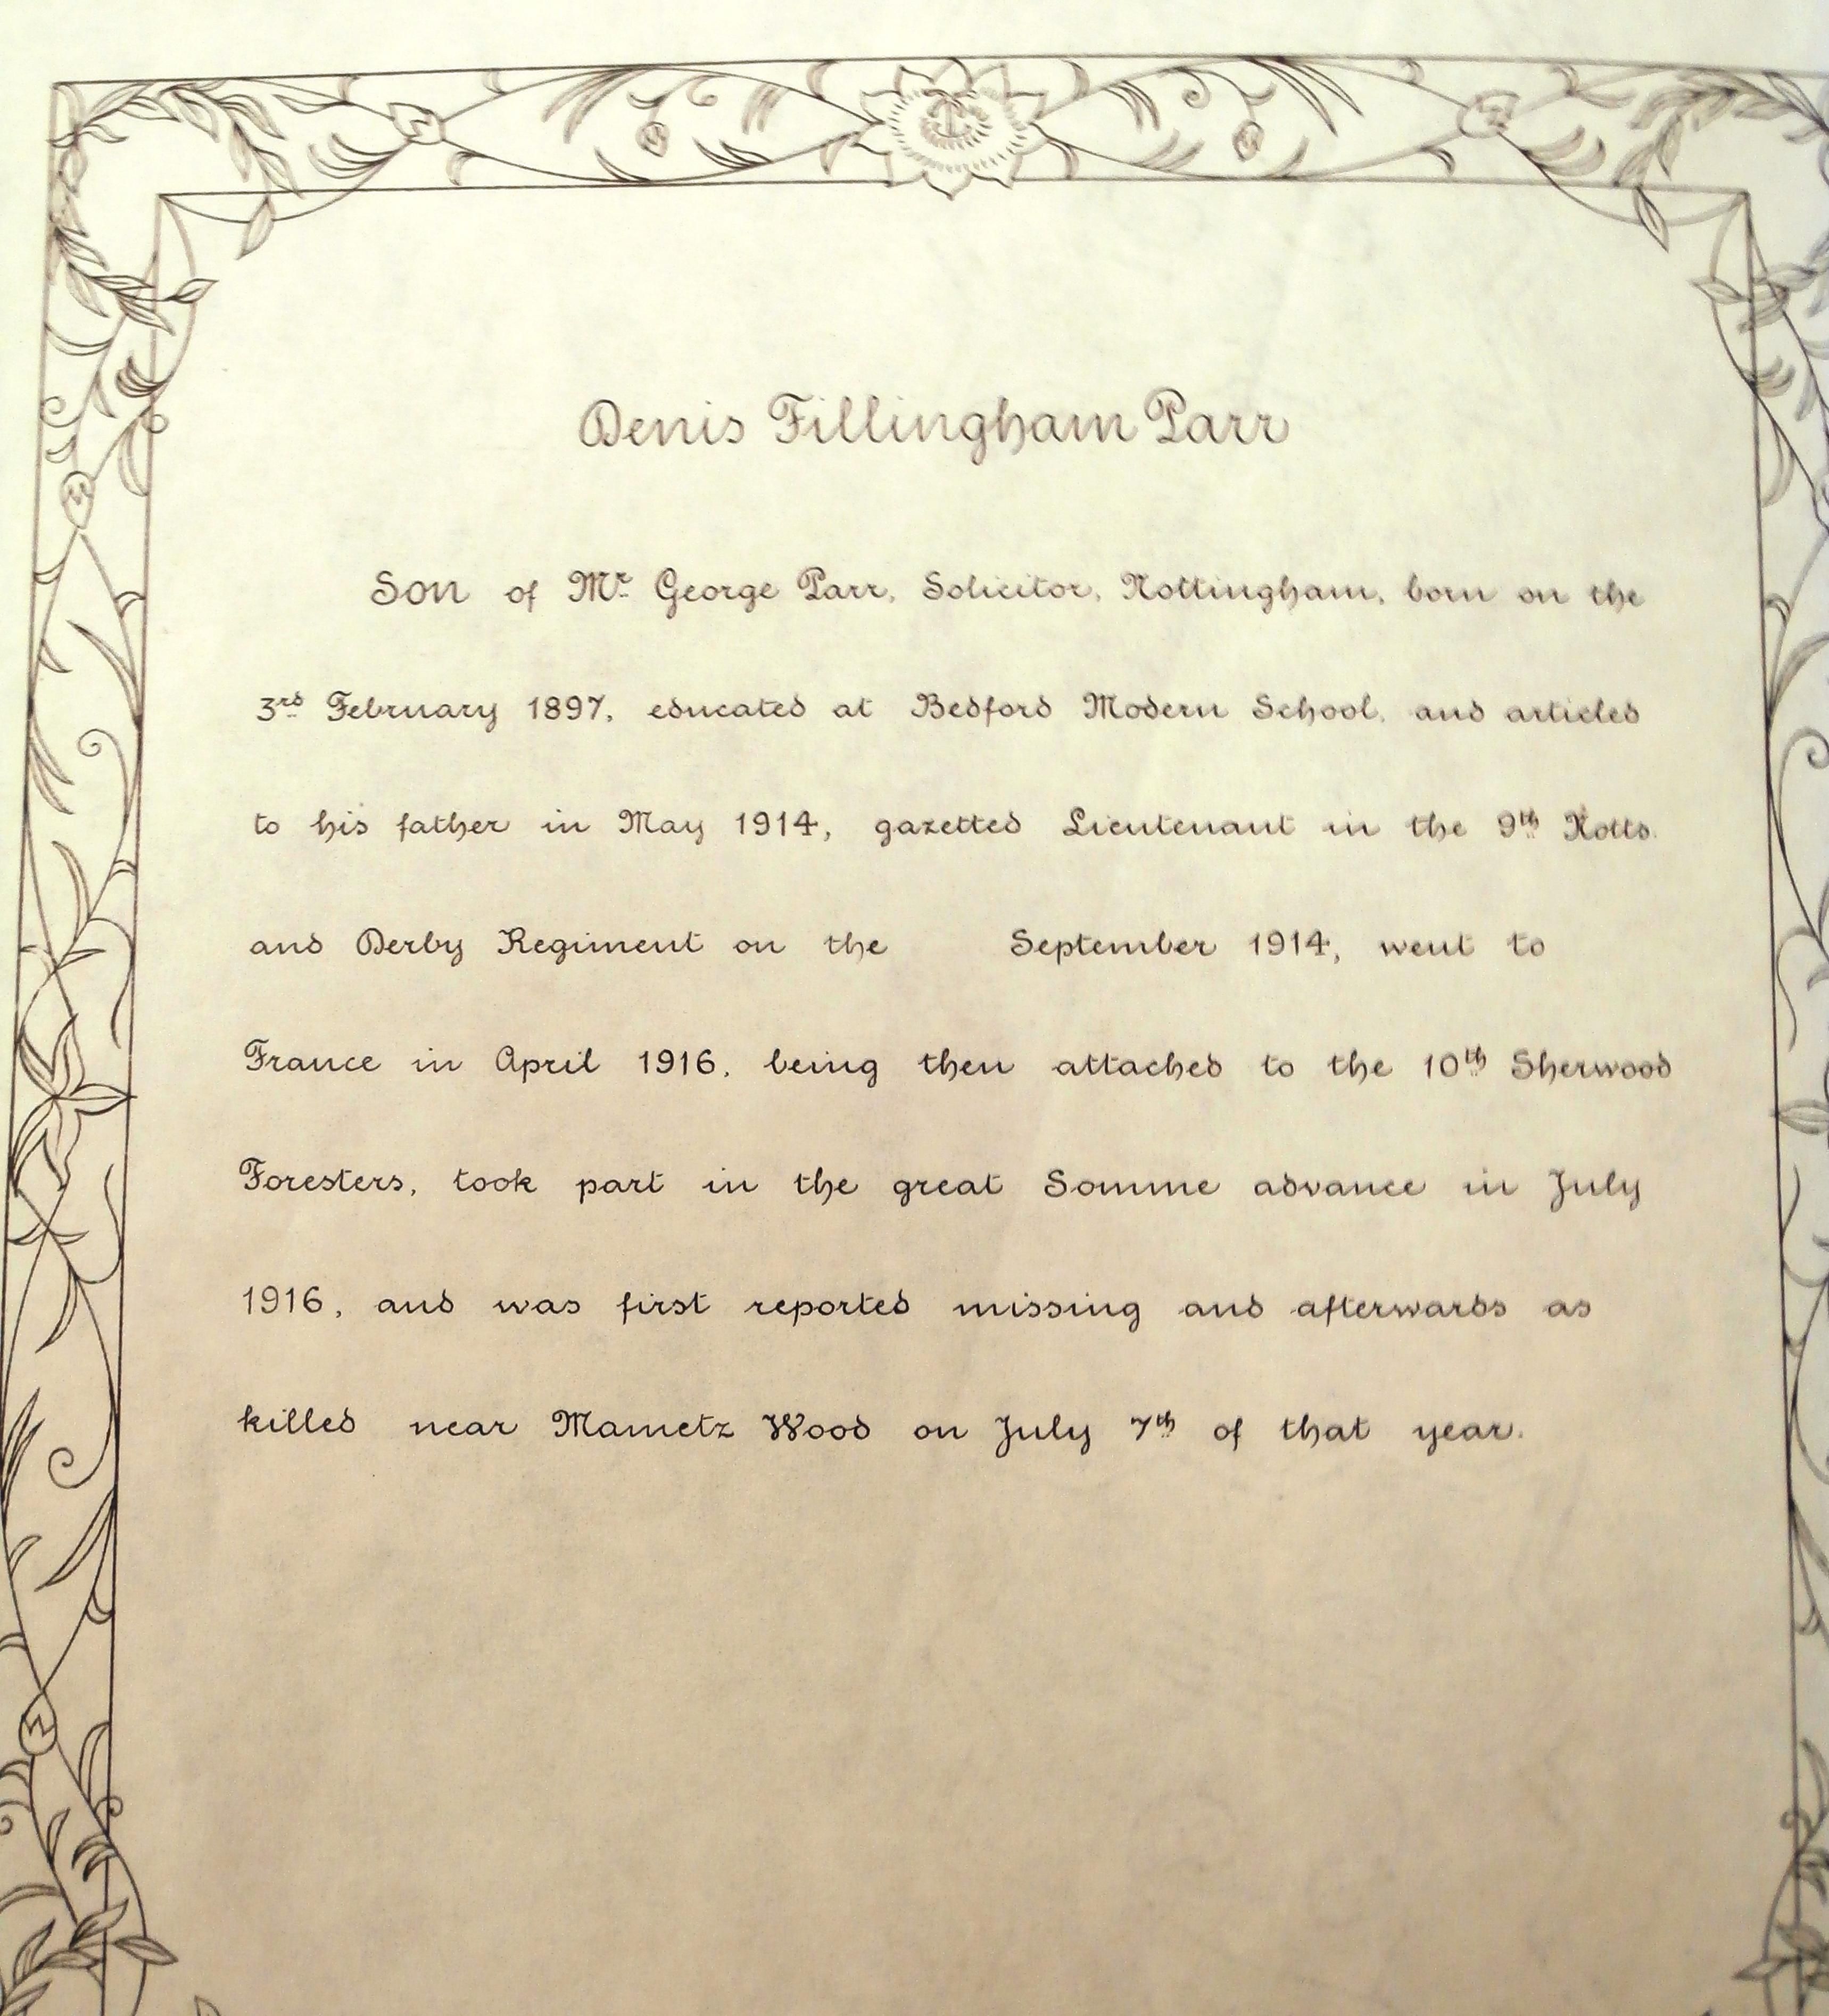 Denis Fillingham Parr
Son of Mr. George Parr, Solicitor, Nottingham, born on the
3rd February 1897, educated at Bedford Modern School, and articled
to his father in May 1914, gazetted Lieutenant in the 9th Notts.
and Derby Regiment on the September 1914, went to
France in April 1916, being then attached to the 10th Sherwood
Foresters, took part in the great Somme advance in July
1916, and was first reported missing and afterwards as
killed near Mametz Wood on July 7th of that year.